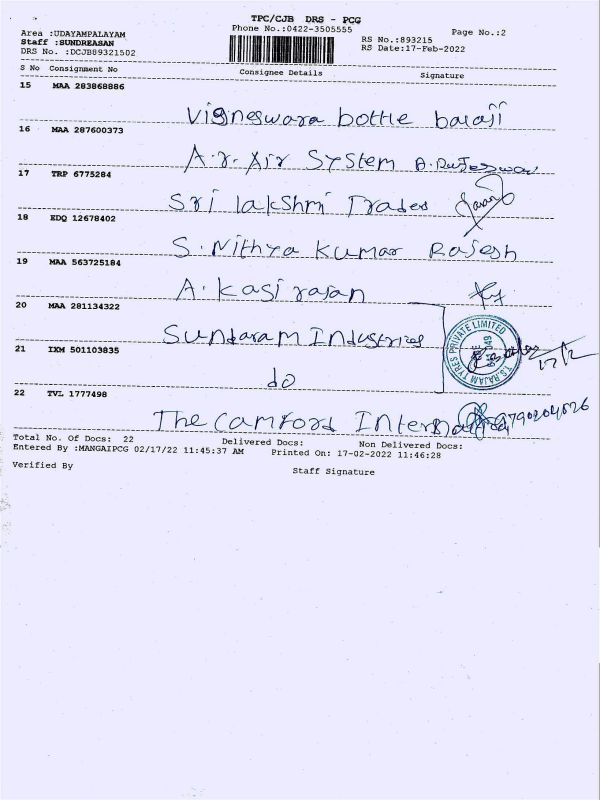 TPC/CJB DRS - PCG
Area :UDAYAMPALAYAM
Phone No.:0422-3505555
Page No.:2
Staff :SUNDREASAN
RS No.:893215
DRS No. :DCJB89321502
RS Date:17-Feb-2022
S No Consignment No Consignee Details Signature
15 MAA 283868886
Vigneswara bottle balaji
16 MAA 287600373
A.r. Air System
17 TRP 6775284
Sri lakshmi Trades
18 EDQ 12678402
S. Nithya Kumar Rajesh
19 MAA 563725184
A. Kasi rajan
20 MAA 281134322
Sundaram Industries
21 IXM 501103835
T.S.RAJAM TYRES PRIVATE LIMITED
17/2
do
22 TVL 1777498
The Camford
Total No. Of Docs: 22 Delivered Docs: Non Delivered Docs:
Entered By :MANGAIPCG 02/17/22 11:45:37 AM Printed On: 17-02-2022 11:46:28
Verified By Staff Signature